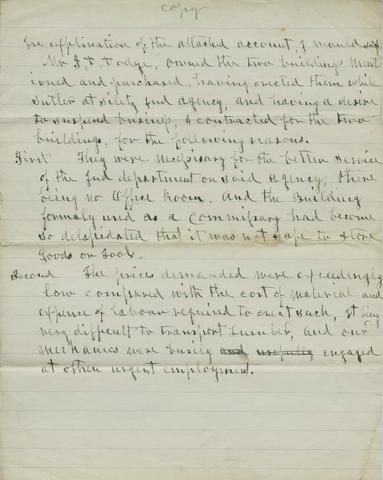 Copy
In explination of the attached account, I would say.
Mr J. T. Dodge, owned the two buildings ment
ioned and purchased, having erected them while
Sutler at Siletz Ind Agency, and having a desire
to suspend business, I contracted for the two
buildings, for the following reasons.
First They were necessary for the better service
of the Ind department on said Agency, there
being no Office Room. And the Building
formaly used as a Commissary had become
so delapidated that it was not safe to store
Goods or Tools.
Second The prices demanded were exceedingly
low compared with the cost of material and
expence of Labour required to erect such, it being
very difficult to transport Lumber, and our
Mechanics were busily and usefully engaged
at other urgent employment.